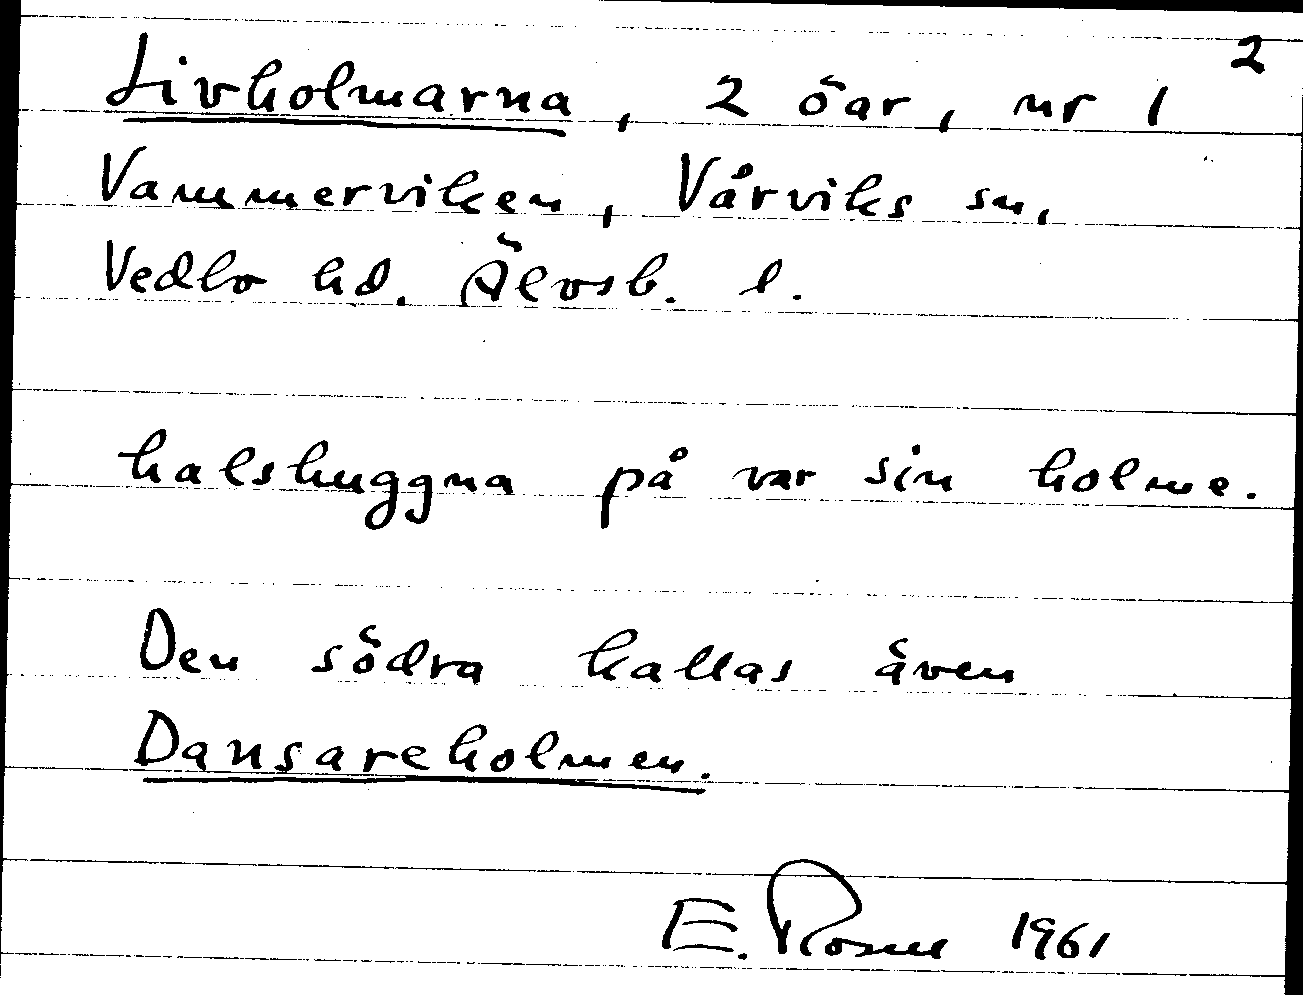 2
Livholmarna, 2 öar, nr 1
Vammerviken, Vårviks sn,
Vedbo hd. Älvsb. l.
halshuggna på var sin holme.
Den södra kallas även
Dansareholmen.
E. 1961